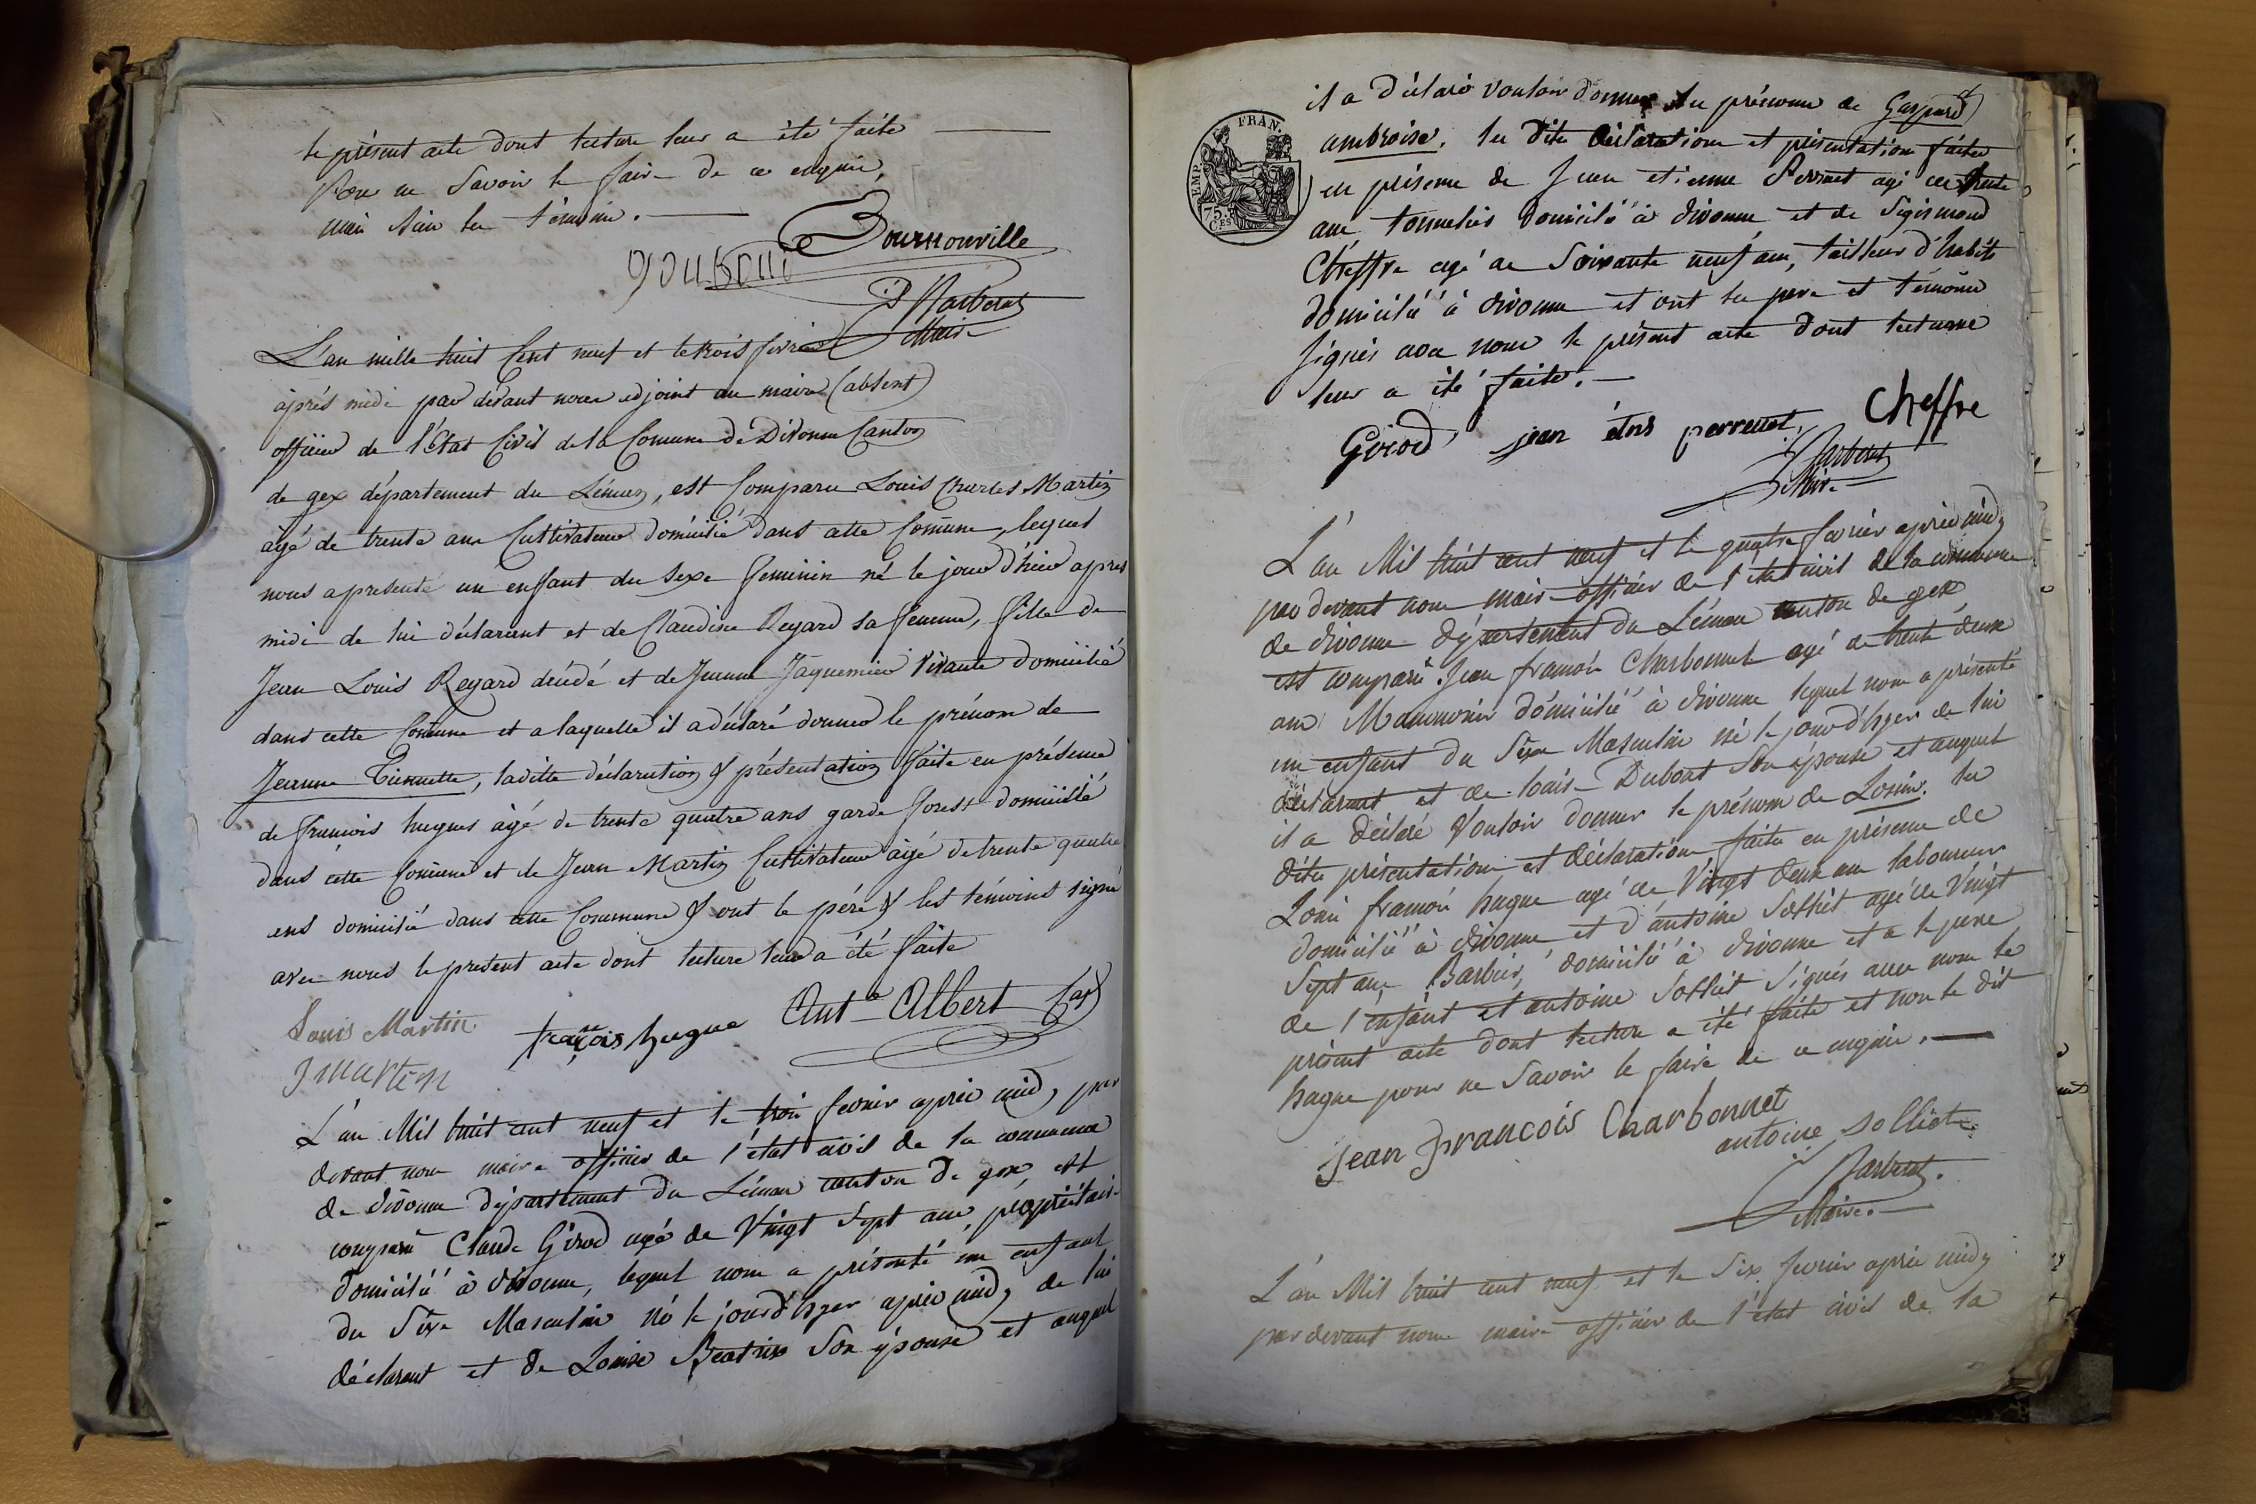 le présent acte dont lecture leur a été faite
pour ne Savoir le faire de ce enquis,
non plus les témoins.
Bournouville
P Marberet
Maire
L'an mille huit Cent neuf et le trois fevrier
aprés midi par devant nous adjoint au maire (absent)
officier de l'Etat Civil de la Comune de Divonne Canton
de gex département du Léman, est Comparu Louis Charles Martin
âgé de trente ans Cultivateur domicilié dans cette Comune, lequel
nous a presenté un enfant du Sexe feminin né le jour d'hier apres
midi de lui déclarant et de Claudine Regard sa femme, fille de
Jean Louis Regard décédé et de Jeanne Jaquemier vivante domicilié
dans cette Comune et a laquelle il a déclaré donner le prénom de
Jeanne Tiennette, la ditte déclaration & présentation faite en présence
de francois hugues âgé de trente quatre ans garde forest domicilié
dans cette Comune et de Jean Martin Cultivateur âgé de trente quatre
ans domicilié dans cette Commune & ont le pére & les témoins signé
avec nous le present acte dont lecture leur a été faite
Louis Martin
françois hugue
Ant.e Albert
J martin
L'an Mil huit cent neuf et le trois fevrier après midy par
devant nous maire officier de l'état civil de la commune
de divonne département du Léman canton de gex, est
comparu Claude Girod agé de Vingt Sept ans, propriétaire
domicilié à divonne, lequel nous a présenté un enfant
du Sexe Masculin né le jour d'hyer après midy de lui
déclarant et de Louise Beatrix Son épouse et auquel
il a déclaré vouloir donner le prénom de Gaspard
ambroise, la dite déclaration et présentation faites
en présence de Jean etienne Perrenet agé de trente
ans tonnelier domicilié à divonne et de Sigismond
Cheffre agé de Soixante neuf ans, tailleur d'habits
domicilié à divonne et ont le pere et témoins
signés avec nous le présent acte dont lecture
leur a été faite.
Girod
jean
Cheffre
Marberet
Maire
L'an Mil huit cent neuf et le quatre fevrier après midy
par devant nous maire officier de l'état civil de la commune
de divonne département du Léman canton de gex
est comparu Jean francois Charbonnet agé de trente deux
ans domicilié à divonne lequel nous a présenté
un enfant du Sexe Masculin né le jour d'hyer de lui
déclarant et de Louise Dubout Son épouse et auquel
il a déclaré vouloir donner le prénom de Louis. la
dite présentation et déclaration faite en présence de
Louis francois hugue agé de Vingt deux ans laboureur
domicilié à divonne et d'antoine Solliet agé de Vingt
Sept ans Barbier, domicilié à divonne et a le pere
de l'enfant et antoine Solliet Signés avec nous le
présent acte dont lecture a été faite et non le dit
hugue pour ne Savoir le faire de ce enquis.
jean francois Charbonnet
antoine Solliet
Marberet.
Maire.
L'an Mil huit cent neuf et le Six fevrier après midy
par devant nous maire officier de l'état civil de la